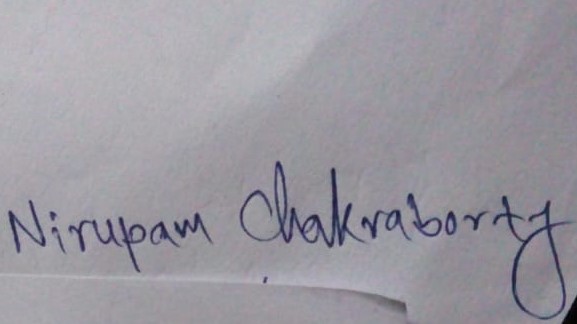 Nirupam Chakraborty